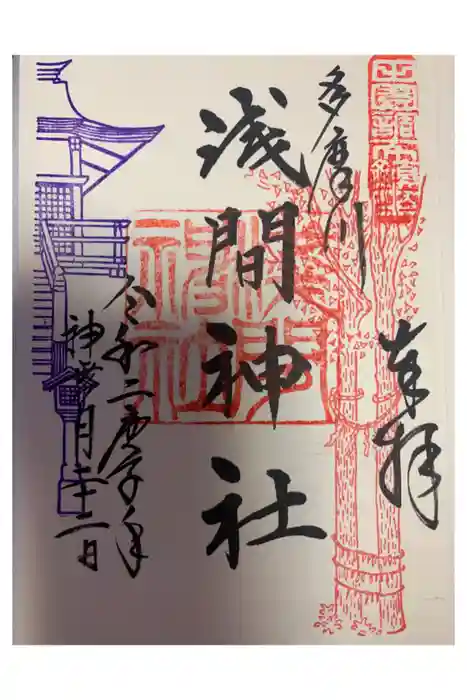 奉拝
多摩川
浅間神社
令和二庚子年
神無月二十二日